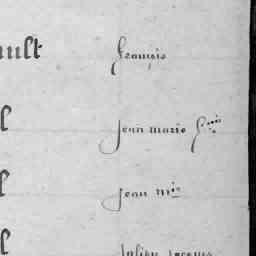 ault françois
l jean marie f.....
l jean m.is
l julien jacques